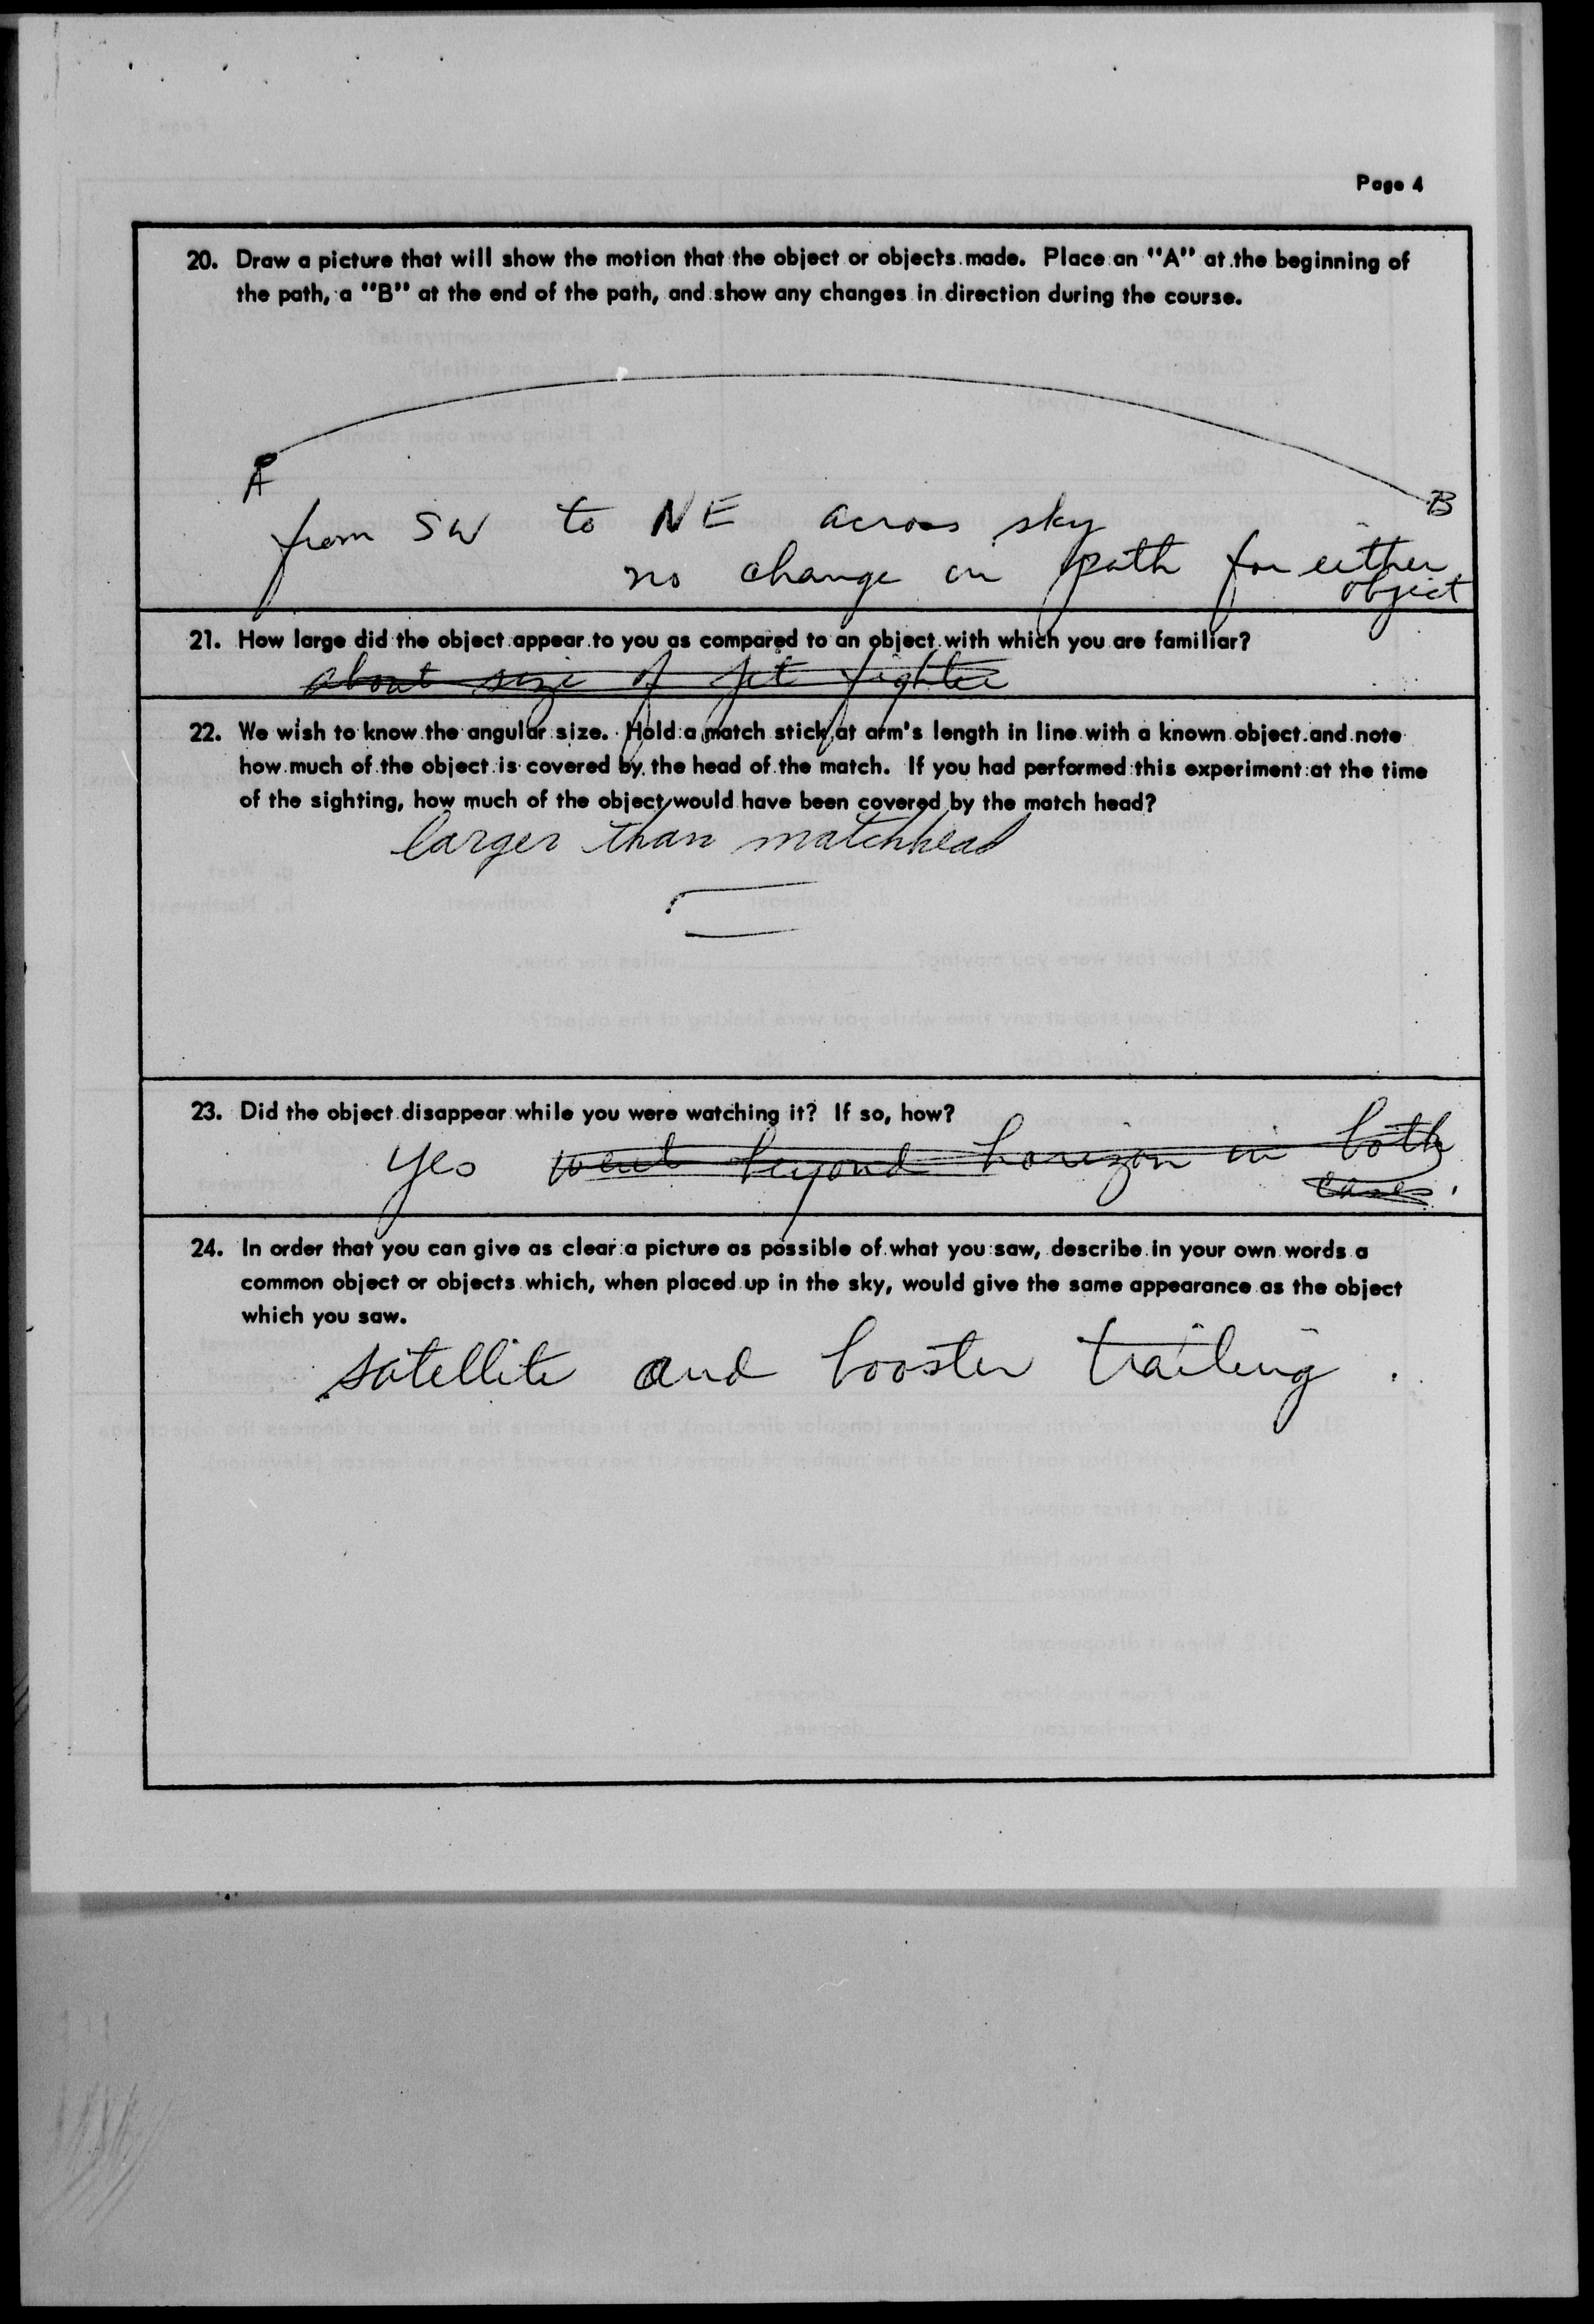 Page 4
20. Draw a picture that will show the motion that the object or objects made. Place an "A" at the beginning of
the path, a "B" at the end of the path, and show any changes in direction during the course.
A
B
from SW to NE across sky
no change in path for either
object
21. How large did the object appear to you as compared to an object with which you are familiar?
about size of jet fighter
22. We wish to know the angular size. Hold a match stick at arm's length in line with a known object and note
how much of the object is covered by the head of the match. If you had performed this experiment at the time
of the sighting, how much of the object would have been covered by the match head?
larger than matchhead
23. Did the object disappear while you were watching it? If so, how?
Yes went beyond horizon in both
cases.
24. In order that you can give as clear a picture as possible of what you saw, describe in your own words a
common object or objects which, when placed up in the sky, would give the same appearance as the object
which you saw.
satellite and booster trailing.